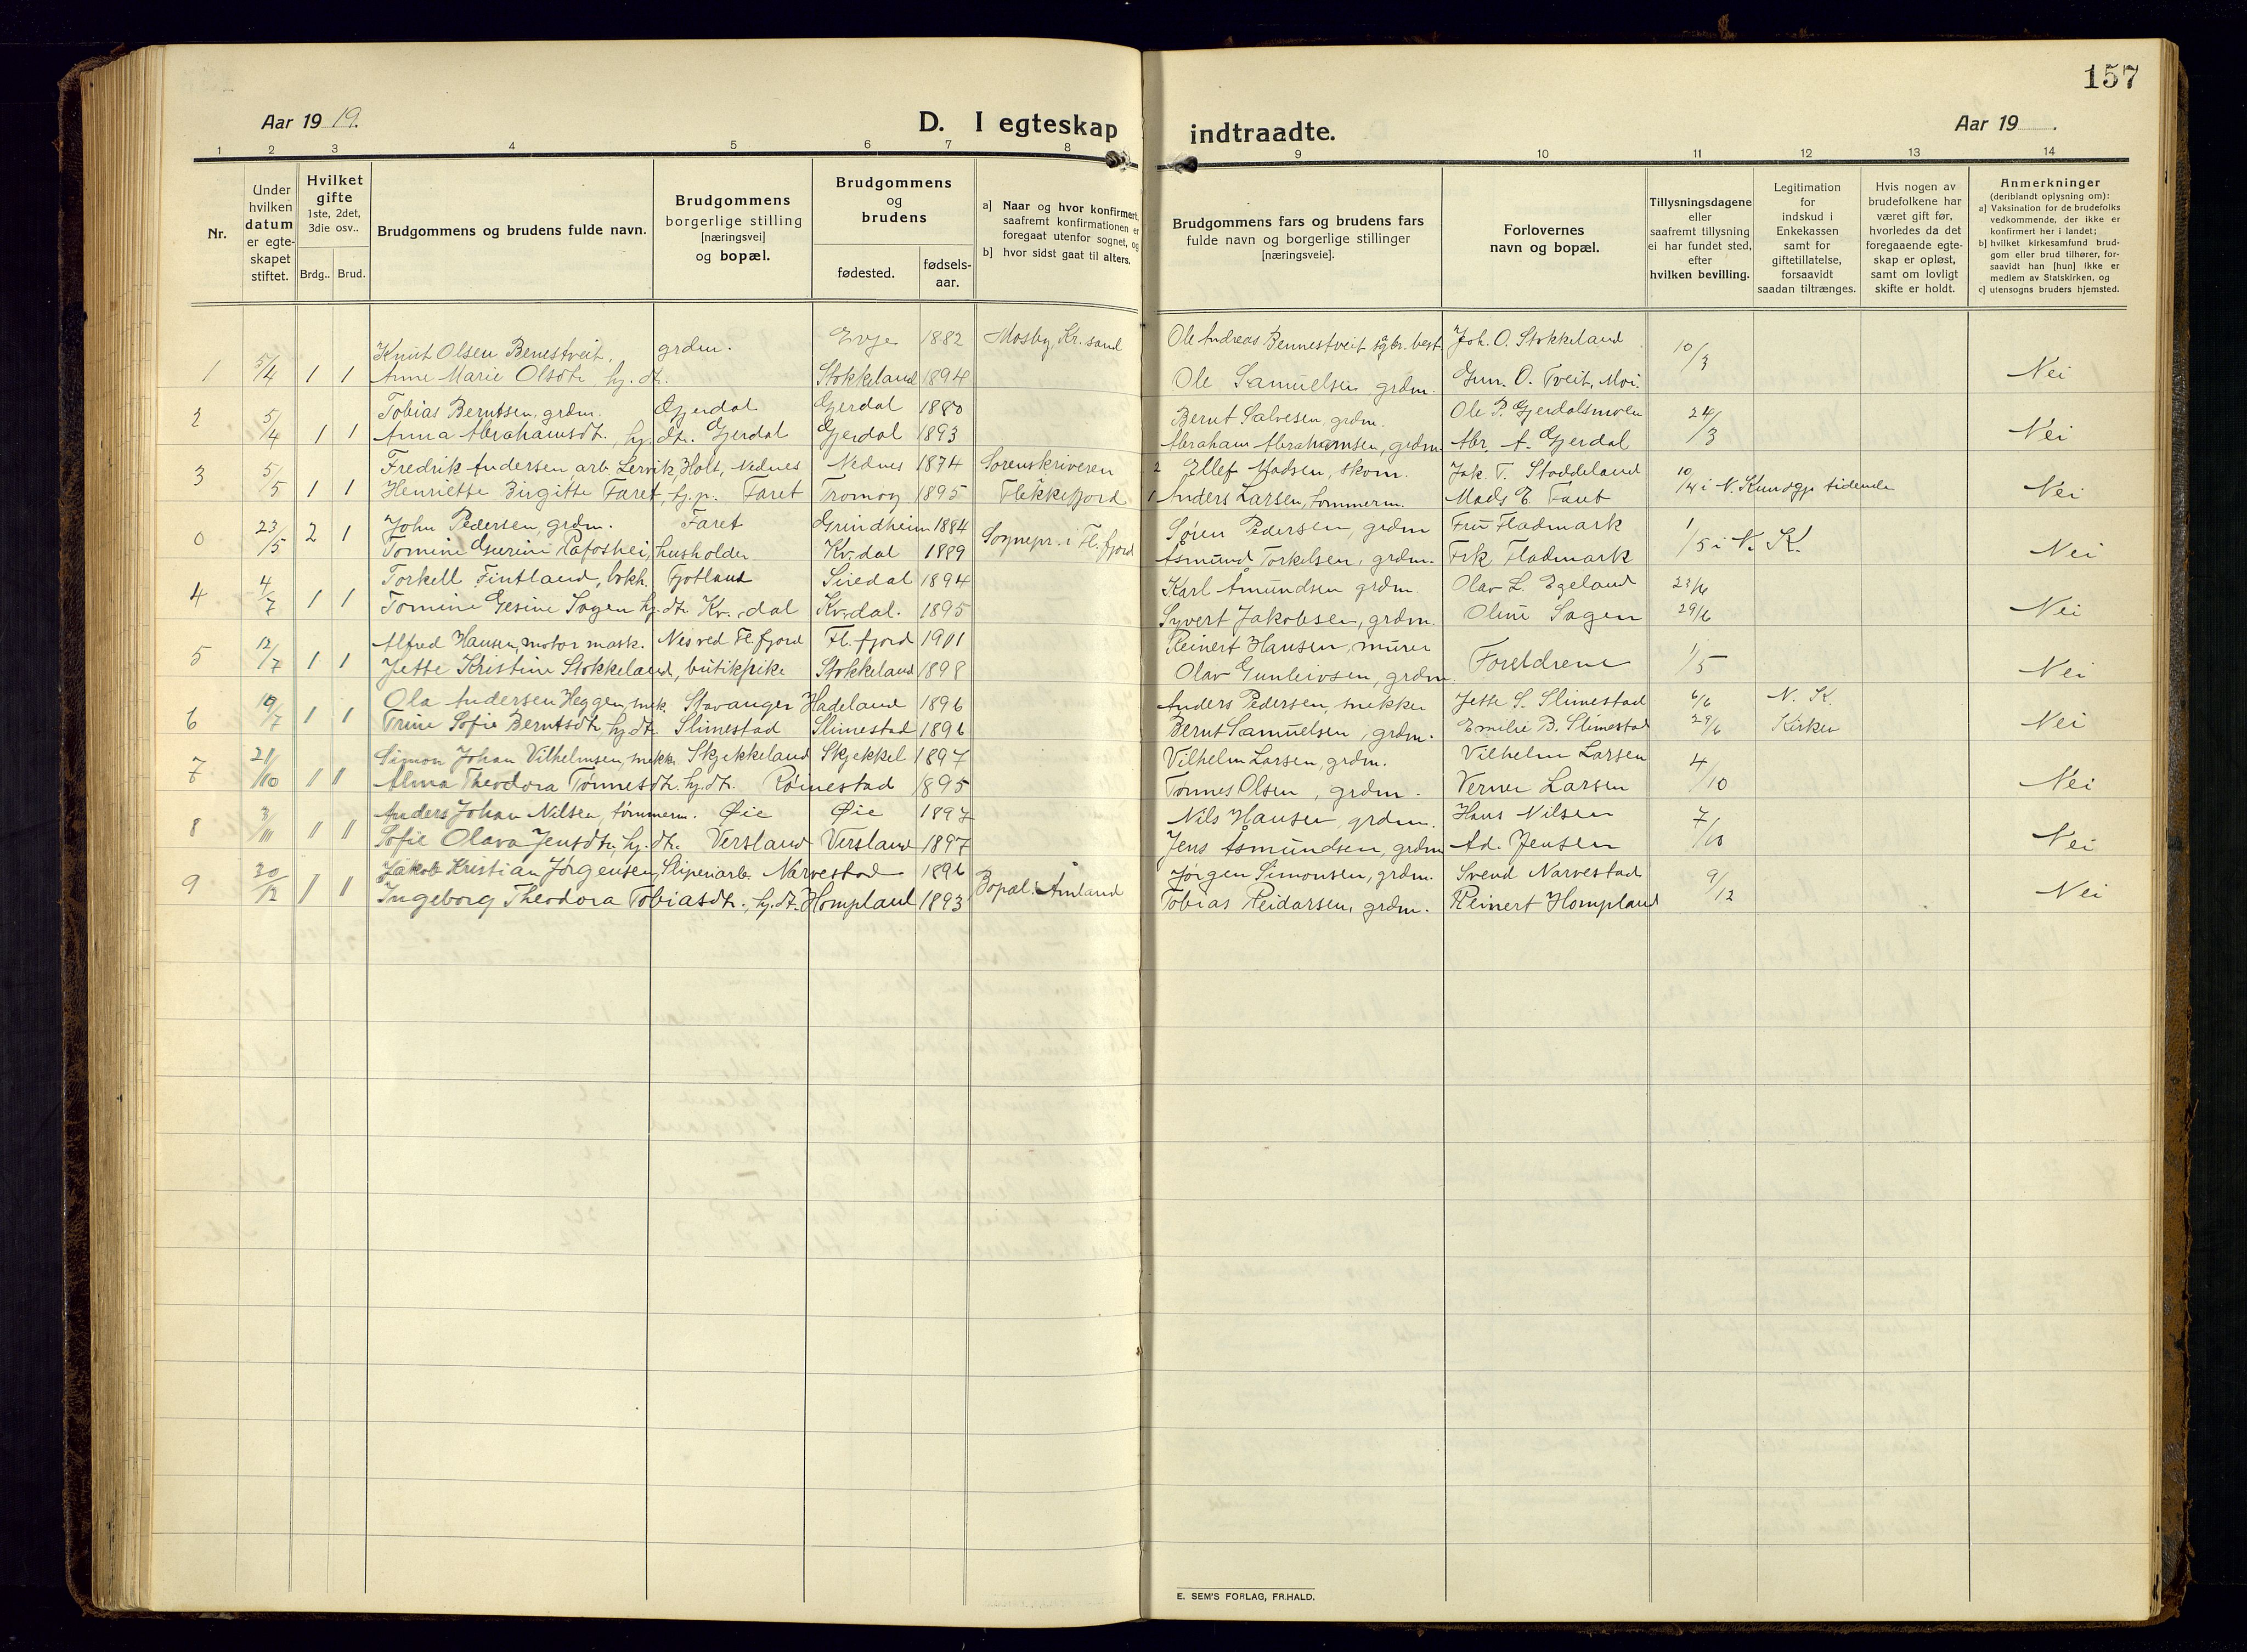 157
Aar 19 19.
D. I egteskap indtraadte.
Aar 19 .
1 2 3 4 5 6 7 8 9 10 11 12 13 14
Nr.
Under hvilken datum er egte-skapet stiftet.
Hvilket gifte 1ste, 2det, 3die osv..
Brdg.. Brud.
Brudgommens og brudens fulde navn.
Brudgommens borgerlige stilling [næringsvei] og bopæl.
Brudgommens og brudens
fødested.
fødsels-aar.
a] Naar og hvor konfirmert, saafremt konfirmationen er foregaat utenfor sognet, og
b] hvor sidst gaat til alters.
Brudgommens fars og brudens fars fulde navn og borgerlige stillinger [næringsveie].
Forlovernes navn og bopæl.
Tillysningsdagene eller saafremt tillysning ei har fundet sted, efter hvilken bevilling.
Legitimation for indskud i Enkekassen samt for giftetillatelse, forsaavidt saadan tiltrænges.
Hvis nogen av brudefolkene har været gift før, hvorledes da det foregaaende egte-skap er opløst, samt om lovligt skifte er holdt.
Anmerkninger (deriblandt oplysning om):
a] Vaksination for de brudefolks vedkommende, der ikke er konfirmert her i landet;
b] hvilket kirkesamfund brud-gom eller brud tilhører, for-saavidt han [hun] ikke er medlem av Statskirken, og
c] utensogns bruders hjemsted.
Knut Olsen Benestveit, grdm. Evje 1882 Mosby, Kr. sand Ole Andreas Bennestveit sagbr. best. Joh. O. Stokkeland 10/3
1 5/4 1 1 Anne Marie Olsdtr, hj. dtr. Stokkeland 1894 Ole Samuelsen grdm. Gun. O. Tveit, Moi. Nei
2 5/4 Tobias Berntsen, grdm. Gjerdal Gjerdal 1880 Bernt Salvesen, grdm. Ole P. Gjerdalsmoen 24/3
1 1 Anna Abrahamsdtr., hj. dtr. Gjerdal Gjerdal 1893 Abraham Abrahamsen, grdm. Abr. A. Gjerdal Nei
3 5/5 Fredrik Andersen arb. Lervik, Holt, Nednes Nednes 1874 Sorenskriveren 2 Ellef Madsen, skom. Jak. T. Stoddeland 10/4 i N. Kundgj. tidende
1 1 Henriette Birgitte Faret, hj. p. Faret Tromøy 1895 Flekkefjord 1 Anders Larsen, tømmerm. Mads E. Nei
0 23/5 2 1 John Pedersen, grdm. Faret Grindheim 1884 Sognepr. i Fl.fjord Søren Pedersen, grdm Fru Fladmark 1/5 i N. K.
Tomine Gurine husholder Kv.dal 1889 Asmund Torkelsen, grdm. Frk Fladmark Nei
4 4/7 Torkell Fintland, bokh. Fjotland Siredal 1894 Karl Åmundsen grdm. Olav L. Egeland 23/6
1 1 Tomine Gesine Sagen hj. dtr. Kv. dal Kv.dal. 1895 Syvert Jakobsen, grdm. Oline Sagen 29/6 Nei
5 12/7 Alfred Hansen, motor mask. Nes ved Fl.fjord Fl.fjord 1901 Reinert Hansen, murer
1 1 Jette Kristine Stokkeland, butikpike Stokkeland 1898 Olav Gunleivsen, grdm. Foreldrene 1/5 Nei
6 19/7 Ola Andersen Heggen, snek. Stavanger Hadeland 1896 Anders Pedersen, snekker Jette S. Slimestad 6/6 N. K.
1 1 Trine Sofie Berntsdtr. hj. dtr. Slimestad Slimestad 1896 Bernt Samuelsen, grdm. Emilie B. Slimestad 29/6 Kirken Nei
7 21/10 Simon Johan Vilhelmsen, snekk. Skjekkeland Skjekkel 1897 Vilhelm Larsen, grdm. Vilhelm Larsen 4/10
1 1 Alma Theodora Tønnesdtr. hj. dtr. Røinestad 1895 Tønnes Olsen, grdm. Verner Larsen Nei
8 3/11 Anders Johan Nilsen, tømmerm. Øie Øie 1897 Nils Hansen, grdm. Hans Nilsen 7/10
1 1 Sofie Olava Jensdtr, hj. dtr. Versland Versland 1897 Jens Åsmundsen, grdm Ad. Jensen Nei
9 30/12 Jakob Kristian Jørgensen, Sliperiarb. Narvestad 1896 Bopæl: Amland Jørgen Simonsen, grdm. Svend Narvestad 9/12
1 1 Ingeborg Theodora Tobiasdtr., hj. dt. Hompland 1893 Tobias Reidarsen, grdm. Reinert Hompland Nei
E. SEM'S FORLAG, FR.HALD.